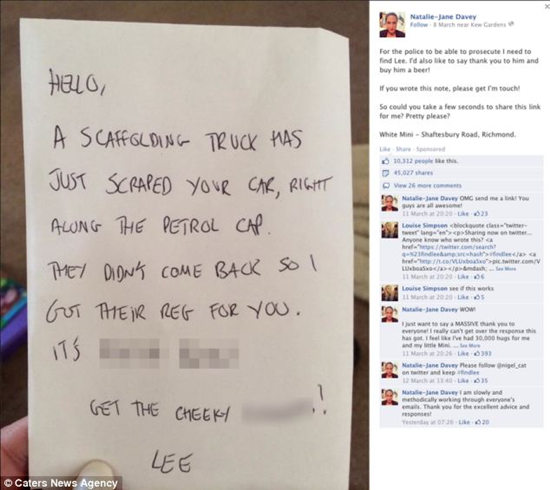 HELLO,
A SCAFFOLDING TRUCK HAS
JUST SCRAPED YOUR CAR, RIGHT
ALONG THE PETROL CAP.
THEY DIDN'T COME BACK SO I
GOT THEIR REG FOR YOU.
ITS
GET THE CHEEKY !
LEE
© Caters News Agency
Natalie-Jane Davey
Follow · 8 March near Kew Gardens
For the police to be able to prosecute I need to
find Lee. I'd also like to say thank you to him and
buy him a beer!
If you wrote this note, please get I'm touch!
So could you take a few seconds to share this link
for me? Pretty please?
White Mini - Shaftesbury Road, Richmond.
Like · Share · Sponsored
10,312 people like this.
45,027 shares
View 26 more comments
Natalie-Jane Davey OMG send me a link! You
guys are all awesome!
11 March at 20:20 · Like · 23
Louise Simpson <blockquote class="twitter-
tweet" lang="en"><p>Sharing now on twitter...
Anyone know who wrote this? <a
href="https://twitter.com/search?
q=%23findlee&amp;src=hash">#findlee</a> <a
href="http://t.co/VLUxboaSxo">pic.twitter.com/V
LUxboaSxo</a></p>&mdash; ... See More
11 March at 20:20 · Like · 6
Louise Simpson see if this works
11 March at 20:20 · Like · 5
Natalie-Jane Davey WOW!
I just want to say a MASSIVE thank you to
everyone! I really can't get over the response this
has got. I feel like I've had 30,000 hugs for me
and my little Mini. ... See More
11 March at 20:26 · Like · 393
Natalie-Jane Davey Please follow @nigel_cat
on twitter and keep #findlee
12 March at 13:40 · Like · 35
Natalie-Jane Davey I am slowly and
methodically working through everyone's
emails. Thank you for the excellent advice and
responses!
Yesterday at 07:28 · Like · 20